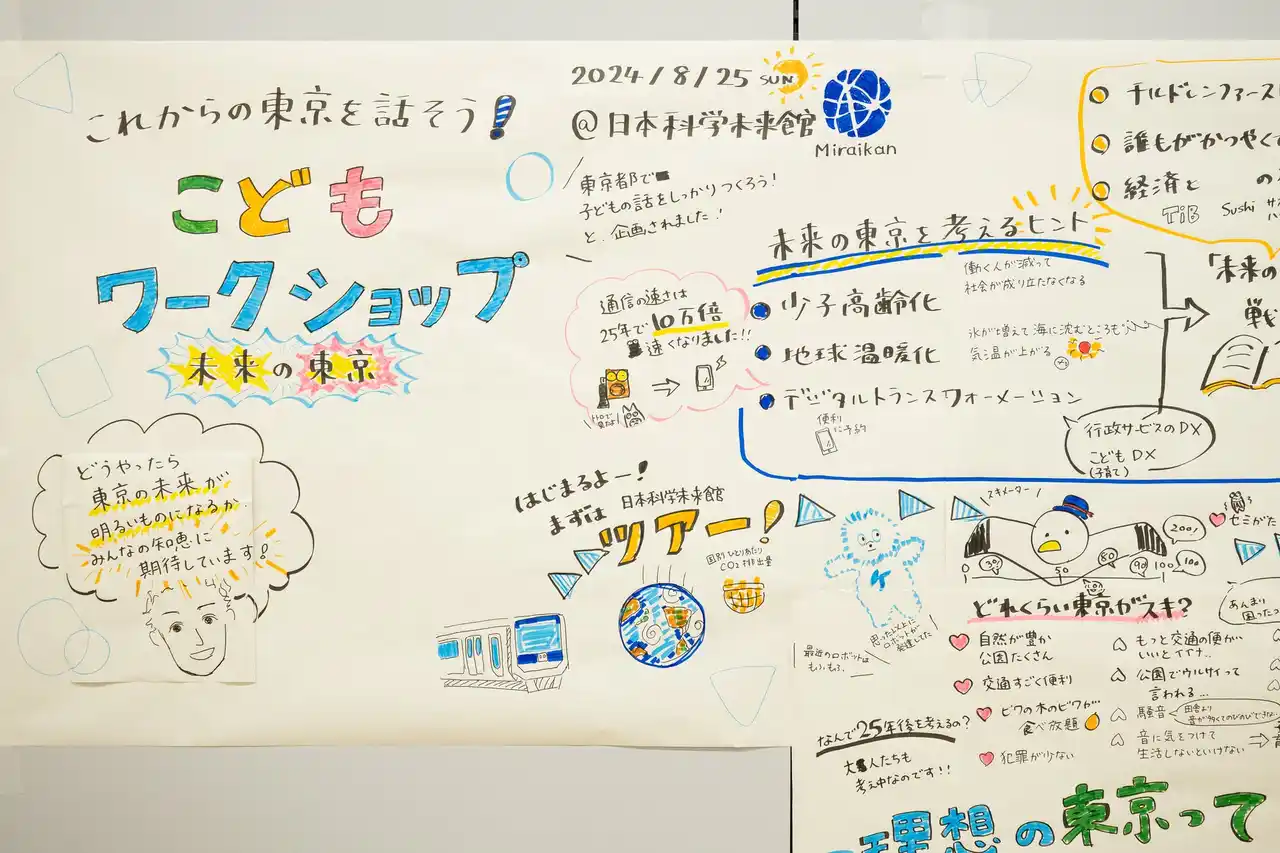 これからの東京を話そう!
こども
ワークショップ
未来の東京
どうやったら
東京の未来が
明るいものになるか
みんなの知恵に
期待しています!
2024/8/25 SUN
@日本科学未来館
Miraikan
東京都で
子どもの話をしっかりつくろう!
と、企画されました!
通信の速さは
25年で10万倍
速くなりました!!
未来の東京を考えるヒント
少子高齢化
働く人が減って
社会が成り立たなくなる
地球温暖化
氷が増えて海に沈むところも
気温が上がる
デジタルトランスフォーメーション
便利
に予約
行政サービスのDX
こどもDX
(子育て)
チルドレンファースト
誰もがかつやく
経済と
の
TiB
Sushi
「未来の
戦
はじまるよー!
まずは
日本科学未来館
ツアー!
国別ひとりあたり
CO2排出量
最近のロボットは
もふもふ。
思った以上に
ロボットが
発達してた
スキメーター
0
30
50
80
90
100
100
200%
セミがた
どれくらい東京がスキ?
自然が豊か
公園たくさん
交通すごく便利
ビワの木のビワが
食べ放題
犯罪が少ない
もっと交通の便がいいとイイナ..
公園でウルサイって
言われる...
騒音
音に気をつけて
生活しないといけない
あんまり
なんで25年後を考えるの?
大人たちも
考え中なのです!!
理想の東京って